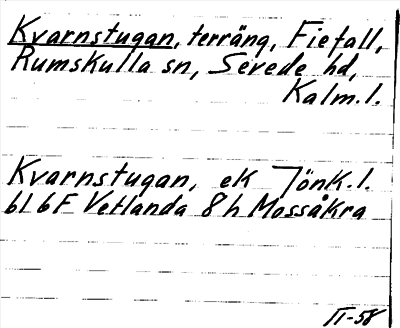 Kvarnstugan, terräng, Fiefall,
Rumskulla sn, Sevede hd,
Kalm.l.
Kvarnstugan, ek Jönk.l.
6l 6F Vetlanda 8h Mossåkra
II-58